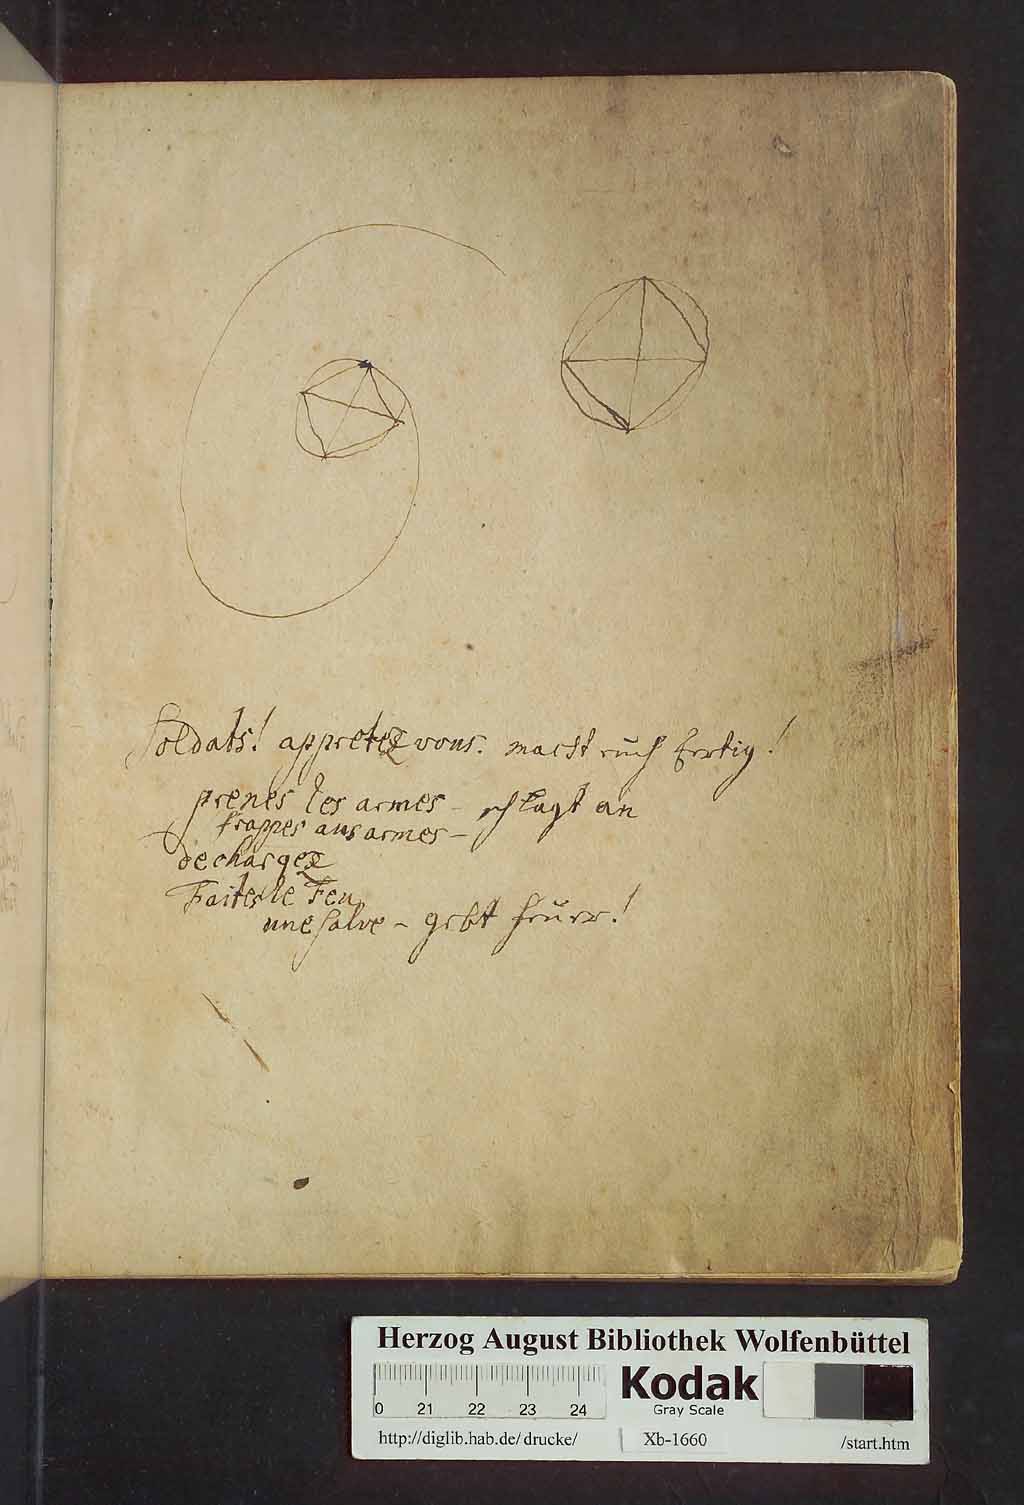 Soldats! appretez vous. macht euch fertig!
prenes les armes – schlagt an
frappes aus armes –
decharges
Faites le Feu
une salve – gebt feuer!
Herzog August Bibliothek Wolfenbüttel
0 21 22 23 24
Kodak
Gray Scale
http://diglib.hab.de/drucke/ Xb-1660 /start.htm